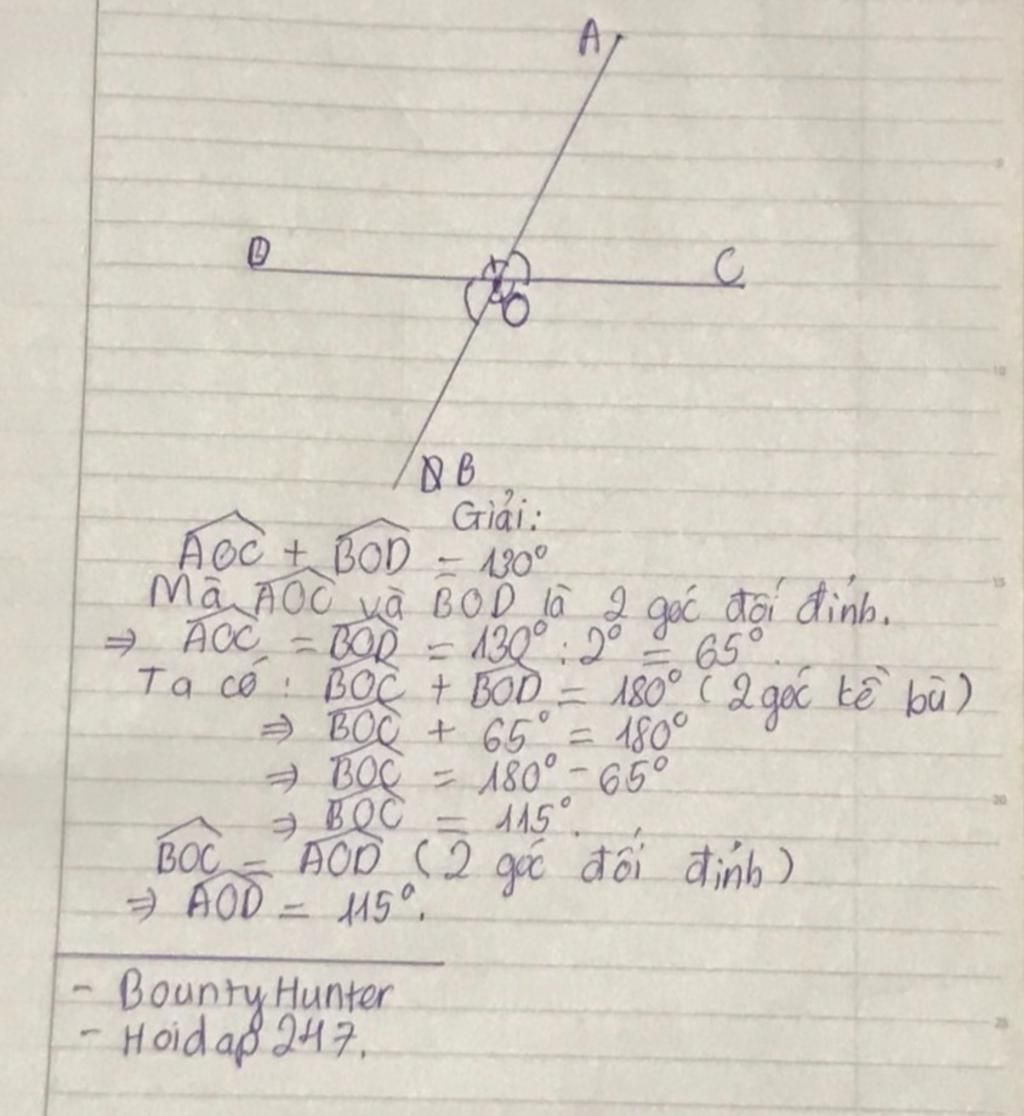 A
D
C
O
B
Giải:
AOC + BOD = 130°
Mà AOC và BOD là 2 góc đối đỉnh.
⇒ AOC = BOD = 130° : 2° = 65°.
Ta có : BOC + BOD = 180° (2 góc kề bù)
⇒ BOC + 65° = 180°
⇒ BOC = 180° - 65°
⇒ BOC = 115°.
BOC = AOD (2 góc đối đỉnh)
⇒ AOD = 115°.
- BountyHunter
- Hoidap247.